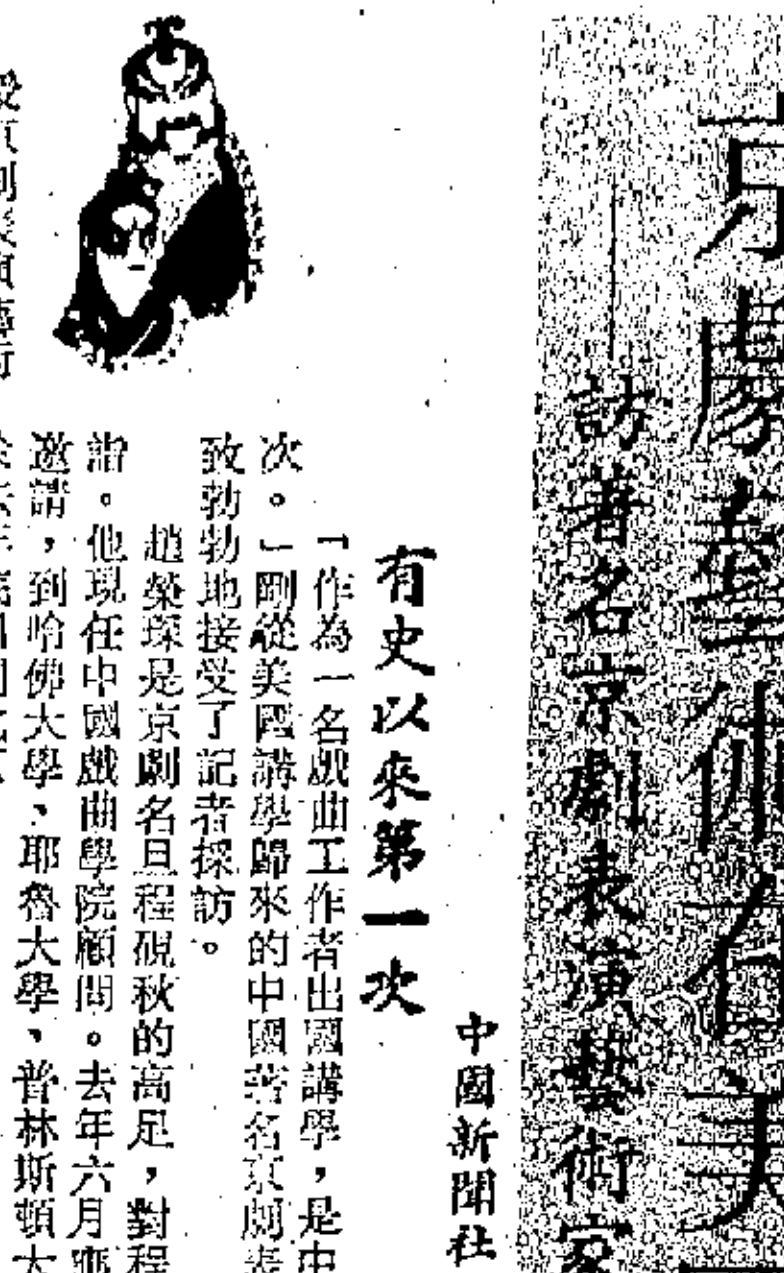 京劇藝術在美
——訪著名京劇表演藝術家
中國新聞社
有史以來第一次
「作為一名戲曲工作者出國講學,是中
次。」剛從美國講學歸來的中國著名京劇表
致勃勃地接受了記者採訪。
趙榮琛是京劇名旦程硯秋的高足,對程
詣。他現任中國戲曲學院顧問。去年六月應
邀請,到哈佛大學、耶魯大學、普林斯頓大